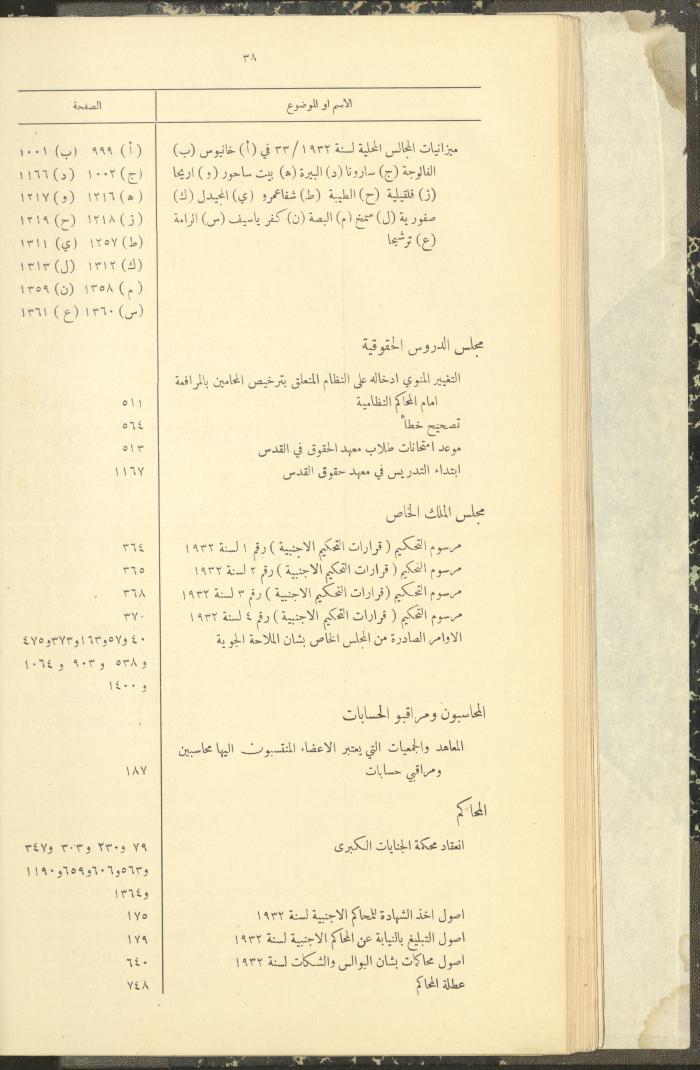 ٣٨
الاسم او الموضوع
الصفحة
ميزانيات المجالس المحلية لسنة ١٩٣٢/٣٣ في (أ) خانيوس (ب)
(أ) ٩٩٩ (ب) ١٠٠١
الفالوجة (ج) سارونا (د) البيرة (ﻫ) بيت ساحور (و) اريحا
(ج) ١٠٠٢ (د) ١١٦٦
(ز) قلقيلية (ح) الطيبة (ط) شفاعمرو (ي) المجيدل (ك)
(ﻫ) ١٢١٦ (و) ١٢١٧
صفورية (ل) سمخ (م) البصة (ن) كفر ياسيف (س) الرامة
(ز) ١٢١٨ (ح) ١٢١٩
(ع) ترشيحا
(ط) ١٢٥٧ (ي) ١٣١١
(ك) ١٣١٢ (ل) ١٣١٣
(م) ١٣٥٨ (ن) ١٣٥٩
(س) ١٣٦٠ (ع) ١٣٦١
مجلس الدروس الحقوقية
التغيير المنوي ادخاله على النظام المتعلق بترخيص المحامين بالمرافعة
امام المحاكم النظامية
٥١١
تصحيح خطأ
٥٦٤
موعد امتحانات طلاب معهد الحقوق في القدس
٥١٣
ابتداء التدريس في معهد حقوق القدس
١١٦٧
مجلس الملك الخاص
مرسوم التحكيم (قرارات التحكيم الاجنبية) رقم ١ لسنة ١٩٣٢
٣٦٤
مرسوم التحكيم (قرارات التحكيم الاجنبية) رقم ٢ لسنة ١٩٣٢
٣٦٥
مرسوم التحكيم (قرارات التحكيم الاجنبية) رقم ٣ لسنة ١٩٣٢
٣٦٨
مرسوم التحكيم (قرارات التحكيم الاجنبية) رقم ٤ لسنة ١٩٣٢
٣٧٠
الاوامر الصادرة من المجلس الخاص بشان الملاحة الجوية
٤٠ و٥٧ و١٦٣ و٣٧٣ و٤٧٥
و ٥٣٨ و ٩٠٣ و ١٠٦٤
و ١٤٠٠
المحاسبون ومراقبو الحسابات
المعاهد والجمعيات التي يعتبر الاعضاء المنتسبون اليها محاسبين
ومراقبي حسابات
١٨٧
المحاكم
انعقاد محكمة الجنايات الكبرى
٧٩ و٢٣٠ و٣٠٣ و٣٤٧
و٥٦٣ و٦٠٦ و٦٥٩ و١١٩٠
و١٣٦٤
اصول اخذ الشهادة للمحاكم الاجنبية لسنة ١٩٣٢
١٧٥
اصول التبليغ بالنيابة عن المحاكم الاجنبية لسنة ١٩٣٢
١٧٩
اصول محاكمات بشان البوالس والشكات لسنة ١٩٣٢
٦٤٠
عطلة المحاكم
٧٤٨